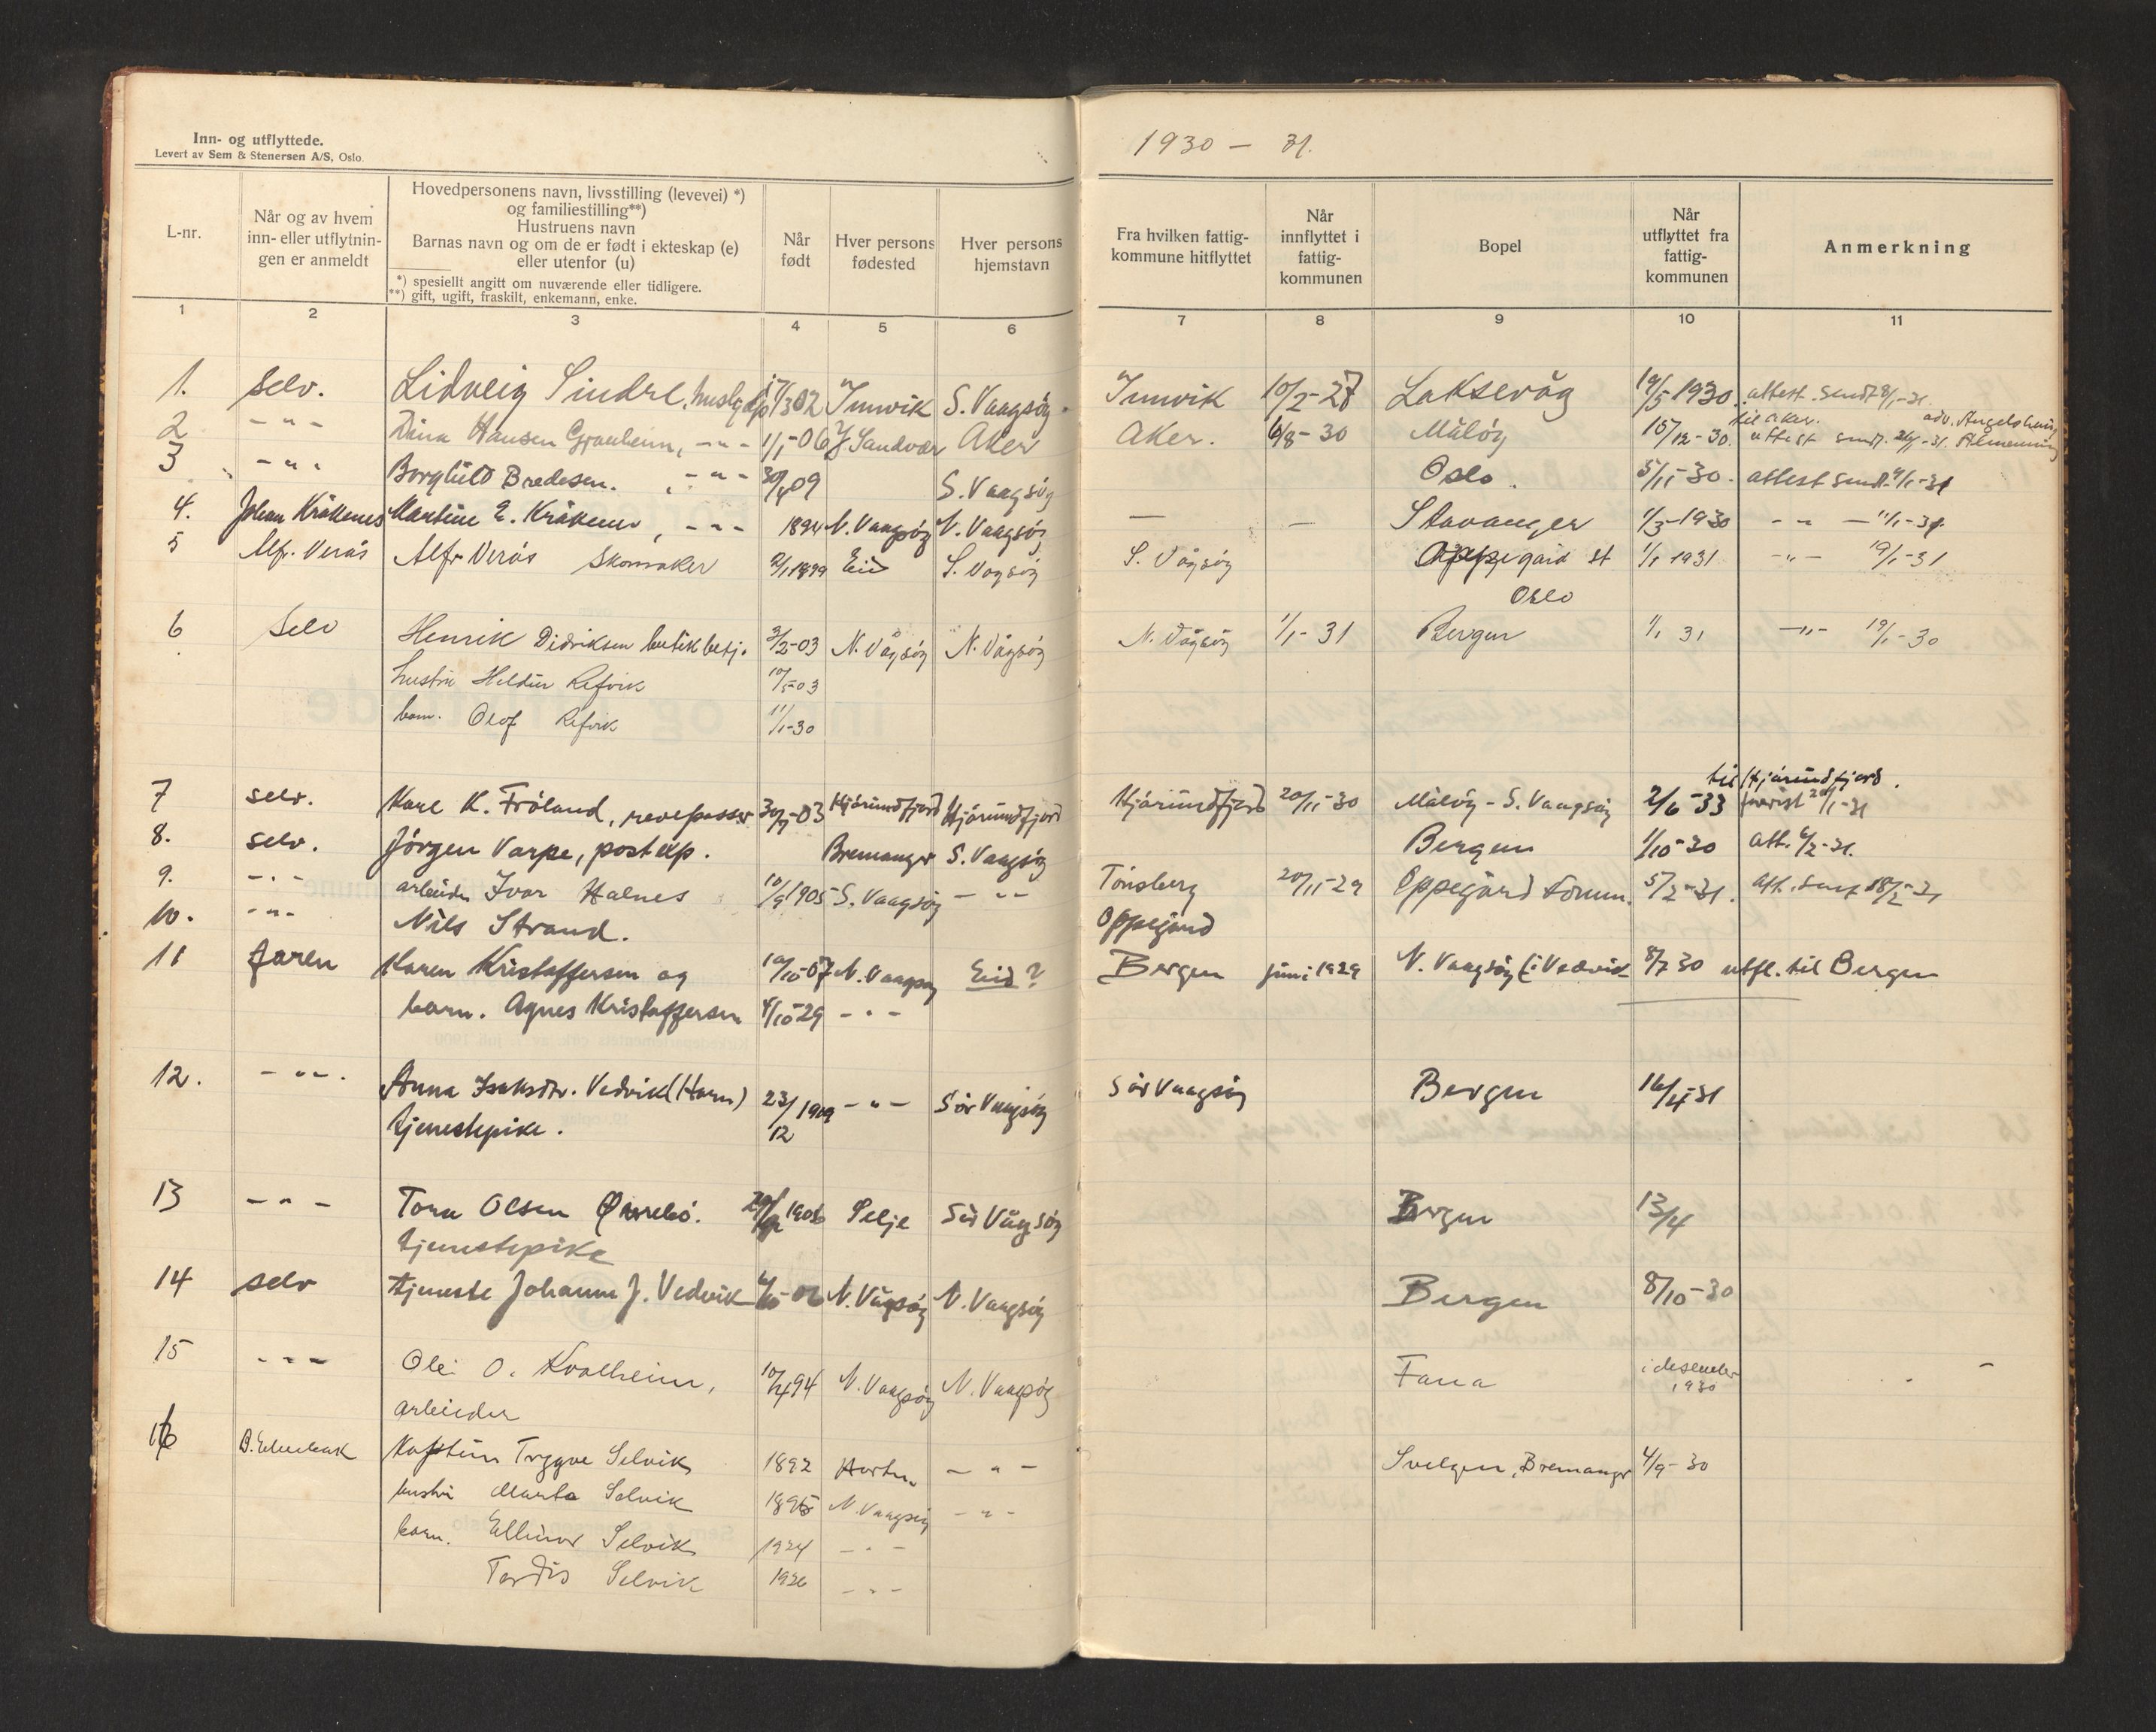 Inn- og utflyttede.
Levert av Sem & Stenersen A/S, Oslo.
1930 — 31.
L-nr.
Når og av hvem
inn- eller utflytnin-
gen er anmeldt
Hovedpersonens navn, livsstilling (levevei) *)
og familiestilling**)
Hustruens navn
Barnas navn og om de er født i ekteskap (e)
eller utenfor (u)
*) spesiellt angitt om nuværende eller tidligere.
**) gift, ugift, fraskilt, enkemann, enke.
Når
født
Hver persons
fødested
Hver persons
hjemstavn
Fra hvilken fattig-
kommune hitflyttet
Når
innflyttet i
fattig-
kommunen
Bopel
Når
utflyttet fra
fattig-
kommunen
Anmerkning
1 2 3 4 5 6 7 8 9 10 11
1. selv. Lidveig Sindre, 17/3 02 Innvik S. Vaagsöy. Innvik 10/2-27 Laksevåg 19/5 1930. attest. sendt 8/1-31.
til Aker.
2 -"- Dina Hansen -"- 1/1-06 Sandvær Aker Aker. 6/8-30 Målöy 15/12-30. attest sendt.
3 -"- Borghild Bredesen. -"- 09 S. Vaagsöy Oslo. 5/11-30. attest sendt 9/1-31
4. Johan Kråkenes Martine E. Kråkenes, -"- 1894 N. Vaagsöy N. Vaagsöy — — Stavanger 1/3-1930 -"- 11/1-31.
5 Alfr. Verås Alfr Verås Skomaker 2/1 1899 Eid S. Vågsöy S. Vågsöy Oppegård st 1/1 1931 -"- 19/1-31
Oslo
6 Selv Henrik Didriksen butikbetj. 3/2-03 N. Vågsöy N. Vågsöy N. Vågsöy 1/1-31 Bergen 1/1 31 -"- 19/1-30
hustru Refvik 10/5-03
barn. Olof Refvik 11/1-30
til Hjörundfjord.
7 selv. Karl K. Fröland, revepasser 03 Hjörundfjord Hjörundfjord Hjörundfjord 20/11-30 Målöy - S. Vaagsöy 2/6-33
8. selv. Jörgen Varpe, posteksp. Bremanger S. Vaagsöy Bergen 1/10-30 att. 6/2-31.
9. -"- arbeider Ivar Halnes 10/9 1905 S. Vaagsöy -"- Tönsberg 20/11-29 Oppegård komm. 5/2-31. att. sendt 18/2-31
10. -"- Nils Strand. Oppegård
11 faren Karen Kristoffersen og 10/10-07 N. Vaagsöy Eid? Bergen juni 1929 N. Vaagsöy (i Vedvik 8/7 30 utfl. til Bergen
barn. Agnes Kristoffersen 4/10 29 -"-
12. -"-. Anna Isaksdtr. Vedvik (Hamn) 23/12 1909 -"- Sör Vaagsöy Sör Vaagsöy Bergen 16/4-31
tjenestepike.
13 -"- Tora Olsen 1906 Selje Sör Vågsöy Bergen 13/4
tjenestepike
14 selv tjeneste Johanne J. Vedvik 06 N. Vågsöy N. Vaagsöy Bergen 8/10-30
15 -"- Ole O. Kvalheim, 94 N. Vaagsöy N. Vaagsöy Fana i desember
1930
arbeider
16 Kaptein Tryggve Selvik 1892 -"- Svelgen, Bremanger 4/9-30
hustru Marta Selvik N. Vaagsöy -"-
barn. Ellinor Selvik 1924 -"-
Tordis Selvik 1926 -"-